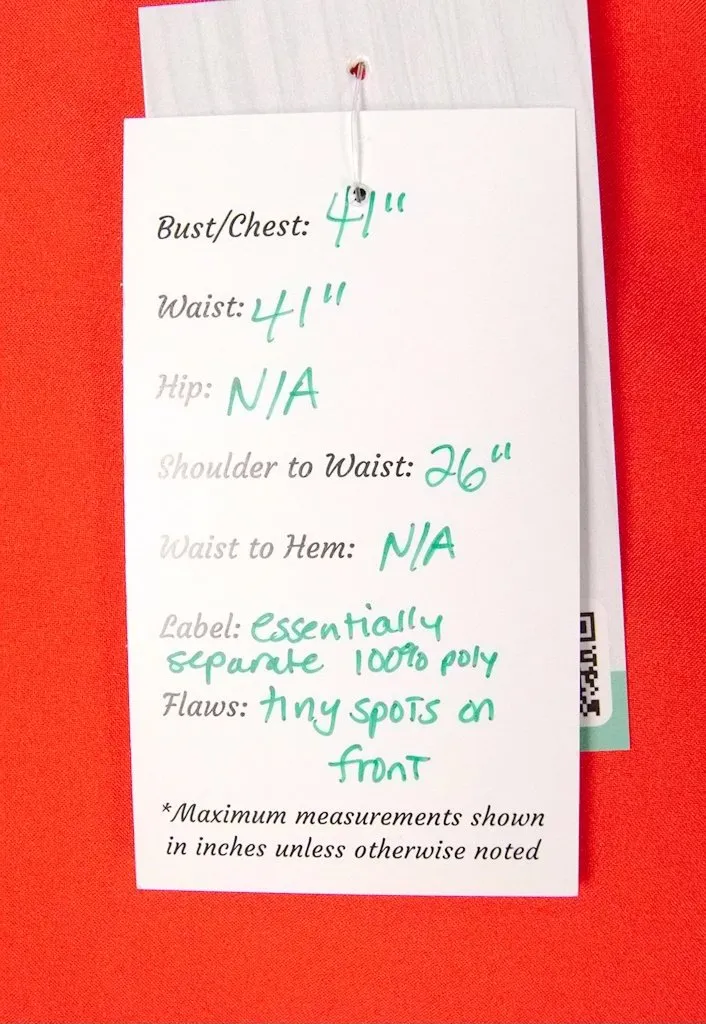 Bust/Chest: 41"
Waist: 41"
Hip: N/A
Shoulder to Waist: 26"
Waist to Hem: N/A
Label: essentially
separate 100% poly
Flaws: tiny spots on
front
*Maximum measurements shown
in inches unless otherwise noted